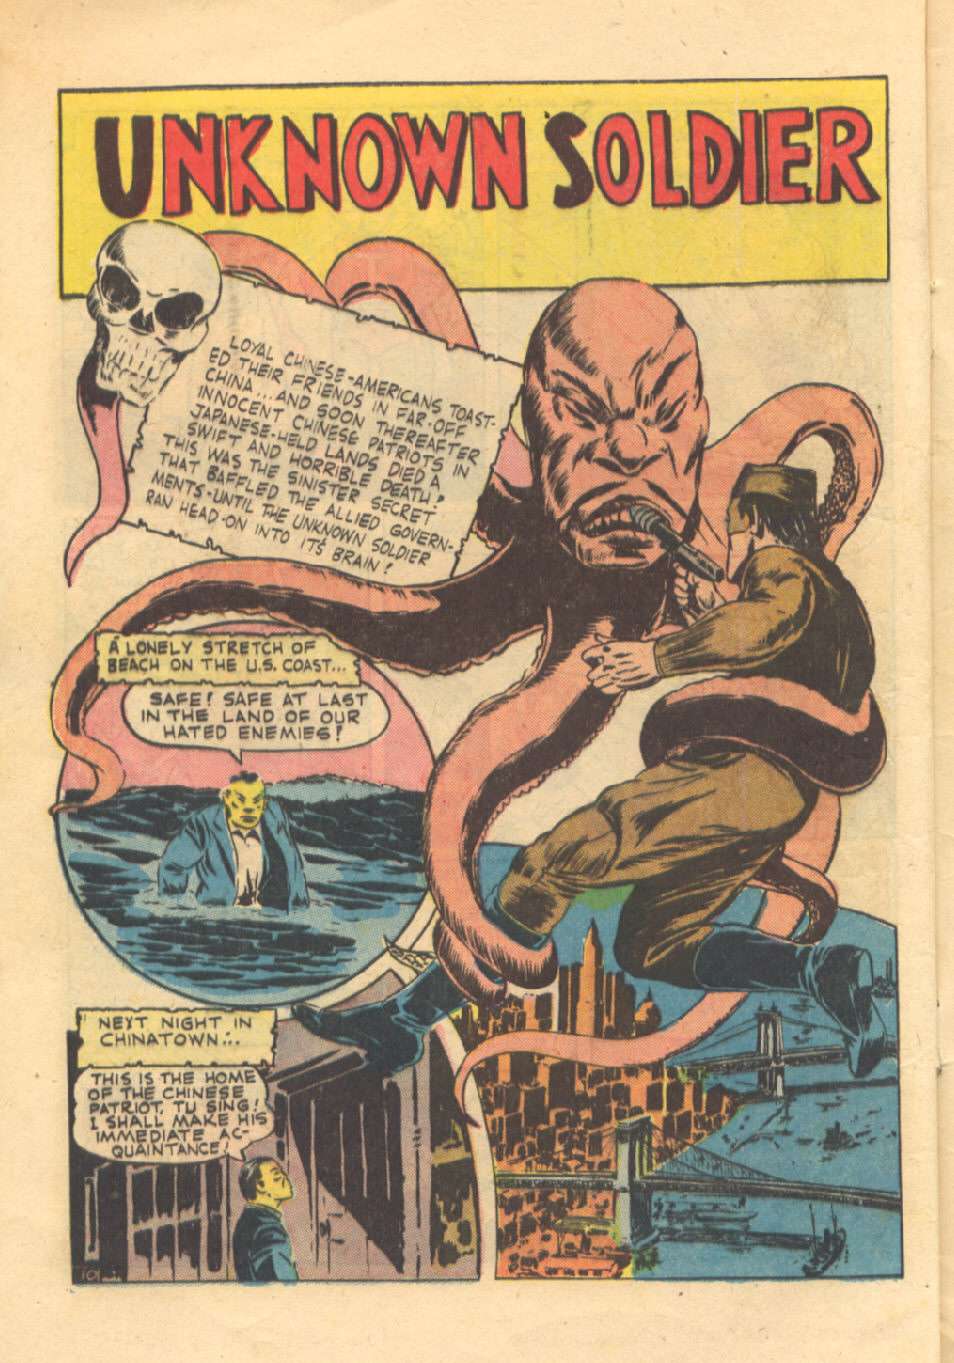 UNKNOWN SOLDIER
LOYAL CHINESE-AMERICANS TOAST-
ED THEIR FRIENDS IN FAR-OFF
CHINA... AND SOON THEREAFTER
INNOCENT CHINESE PATRIOTS IN
JAPANESE-HELD LANDS DIED A
SWIFT AND HORRIBLE DEATH!
THIS WAS THE SINISTER SECRET
THAT BAFFLED THE ALLIED GOVERN-
MENTS-UNTIL THE UNKNOWN SOLDIER
RAN HEAD-ON INTO IT'S BRAIN!
A LONELY STRETCH OF
BEACH ON THE U.S. COAST...
SAFE! SAFE AT LAST
IN THE LAND OF OUR
HATED ENEMIES!
NEXT NIGHT IN
CHINATOWN...
THIS IS THE HOME
OF THE CHINESE
PATRIOT, TU SING!
I SHALL MAKE HIS
IMMEDIATE AC-
QUAINTANCE!